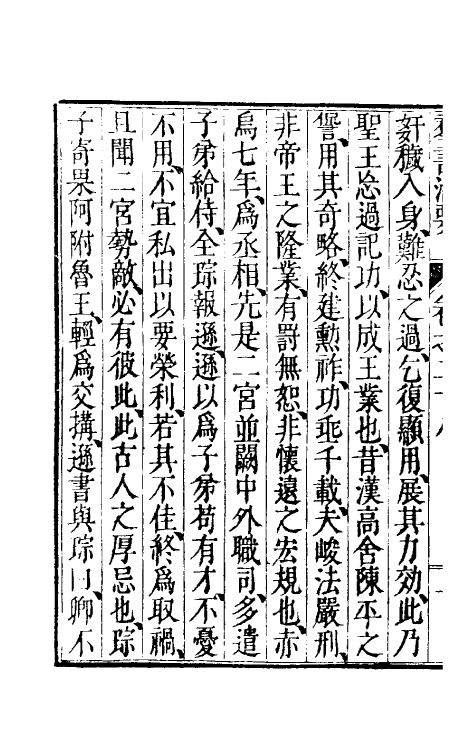 奸穢入身、難忍之過、乞復顯用、展其力效、此乃
聖王忩過記功、以成王業也、昔漢高舍陳平之
諐、用其奇略、終建勳祚、功乖千載、夫峻法嚴刑、
非帝王之隆業、有罰無恕、非懷遠之宏規也、赤
烏七年、爲丞相、先是二宮並闕中外職司、多遣
子弟給侍、全琮報遜、遜以爲子弟苟有才、不憂
不用、不宜私出以要榮利、若其不佳、終爲取禍、
且聞二宮勢敵、必有彼此、此古人之厚忌也、琮
子奇果阿附魯王、輕爲交搆、遜書與琮曰、卿不